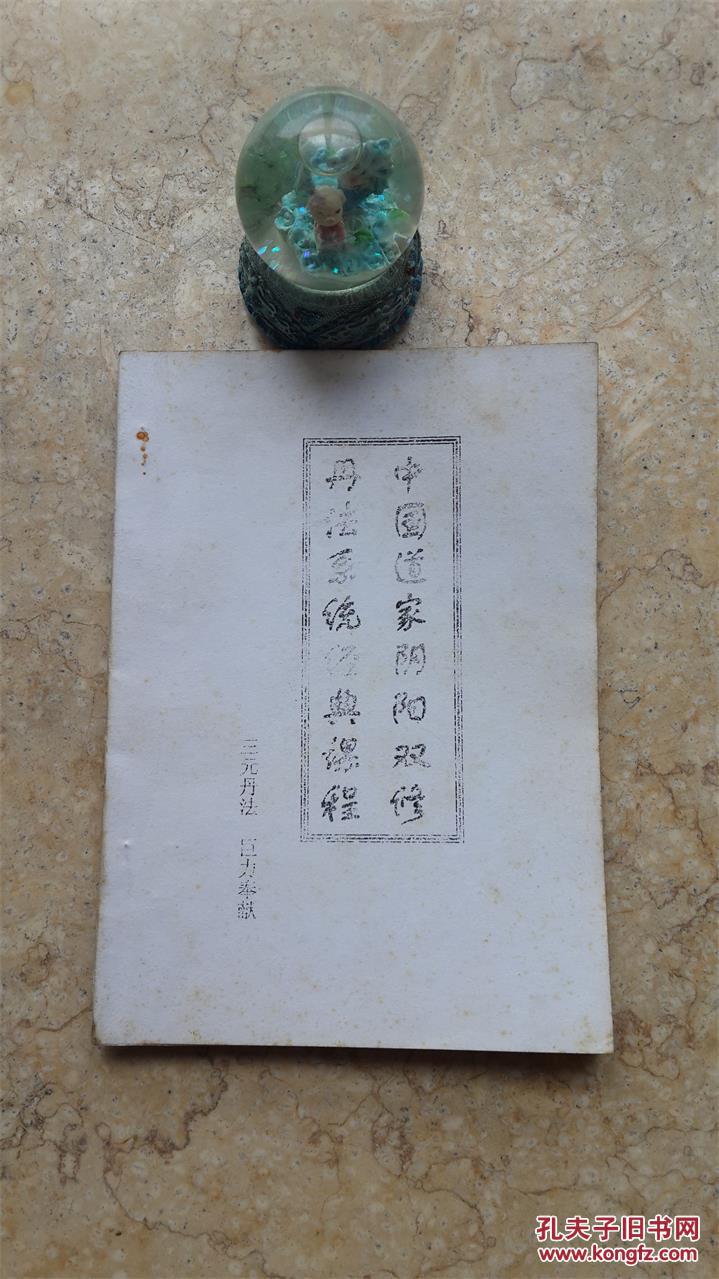 中国道家阴阳双修
丹法系统经典课程
三元丹法 巨力奉献
孔夫子旧书网
www.kongfz.com